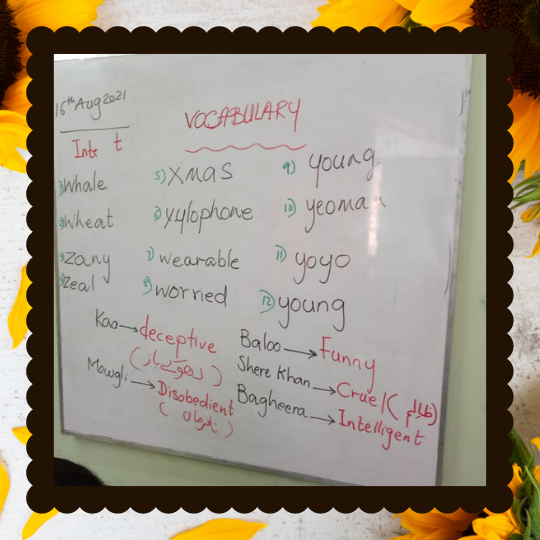 16th Aug 2021
VOCABULARY
1) Whale
2) Wheat
3) Zany
4) Zeal
5) Xmas
6) xylophone
7) wearable
8) worried
9) young
10) yeoman
11) yoyo
12) young
Kaa → deceptive
(دھوکے باز)
Mowgli → Disobedient
(نافرمان)
Baloo → Funny
Shere Khan → Cruel (ظالم)
Bagheera → Intelligent